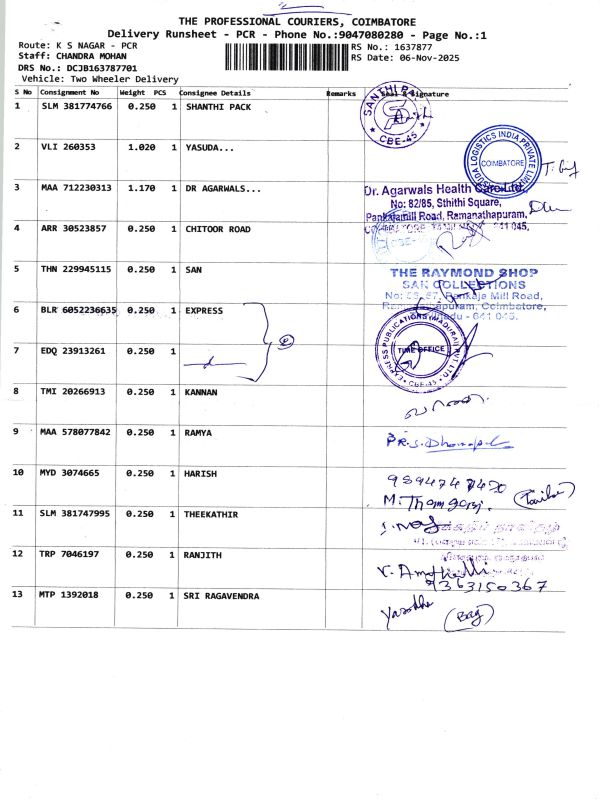 THE PROFESSIONAL COURIERS, COIMBATORE
Delivery Runsheet - PCR - Phone No.:9047080280 - Page No.:1
Route: K S NAGAR - PCR
RS No.: 1637877
Staff: CHANDRA MOHAN
RS Date: 06-Nov-2025
DRS No.: DCJB163787701
Vehicle: Two Wheeler Delivery
S No Consignment No Weight PCS Consignee Details Remarks Seal & Signature
1 SLM 381774766 0.250 1 SHANTHI PACK
CBE-45
2 VLI 260353 1.020 1 YASUDA...
LOGISTICS INDIA PRIVATE
COIMBATORE
3 MAA 712230313 1.170 1 DR AGARWALS...
Dr. Agarwals Health Care Ltd.
No: 82/85, Sthithi Square,
Pankajamill Road, Ramanathapuram,
641 045,
4 ARR 30523857 0.250 1 CHITOOR ROAD
5 THN 229945115 0.250 1 SAN
THE RAYMOND SHOP
SAN COLLECTIONS
Pankaja Mill Road,
Coimbatore,
641 045.
6 BLR 6052236635 0.250 1 EXPRESS
2
EXPRESS PUBLICATIONS (MADURAI) PVT LTD
TIME OFFICE
CBE-45
7 EDQ 23913261 0.250 1
8 TMI 20266913 0.250 1 KANNAN
9 MAA 578077842 0.250 1 RAMYA
10 MYD 3074665 0.250 1 HARISH
11 SLM 381747995 0.250 1 THEEKATHIR
12 TRP 7046197 0.250 1 RANJITH
9363150367
13 MTP 1392018 0.250 1 SRI RAGAVENDRA
(Bag)